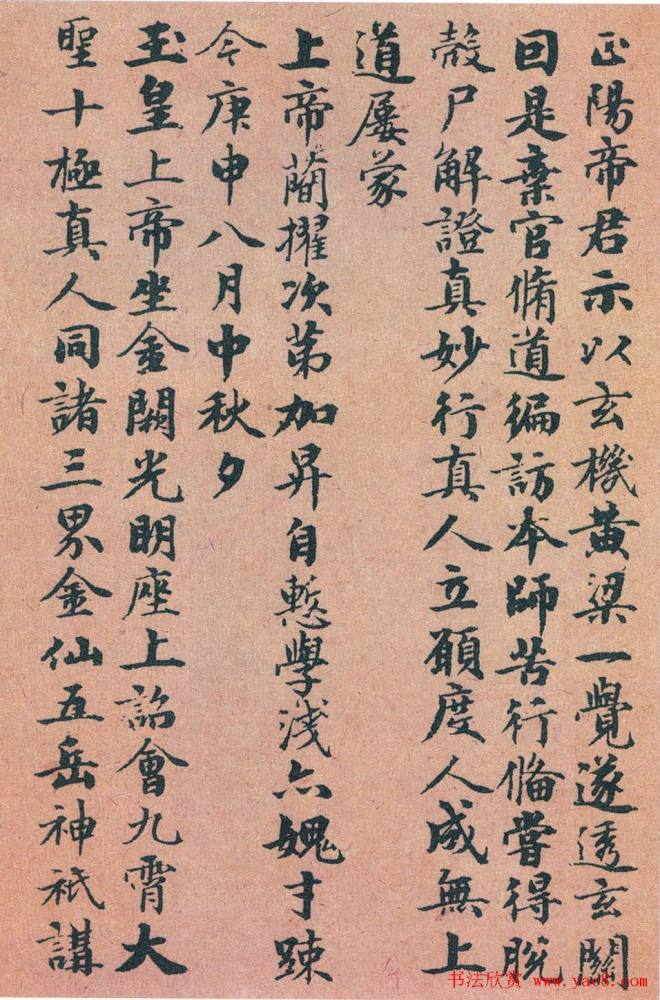 正陽帝君示以玄機黃梁一覺遂透玄關
回是棄官脩道徧訪本師苦行俻嘗得脫
殼尸解證真妙行真人立願度人成無上
道屢蒙
上帝蕳擢次第加昇自慙學淺亦媿才踈
今庚申八月中秋夕
玉皇上帝坐金闕光明座上詔會九霄大
聖十極真人同諸三界金仙五岳神祇講
书法欣赏 www.yac8.com